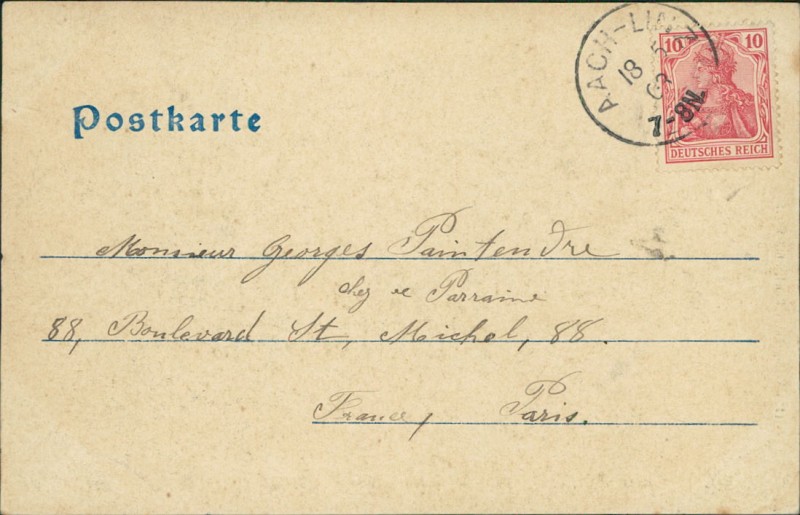 AACH-LINZ
18 5
03
7-8N.
10 10
DEUTSCHES REICH
Postkarte
Monsieur Georges Paintendre
chez Parraine
88, Boulevard St, Michel, 88.
France, Paris.